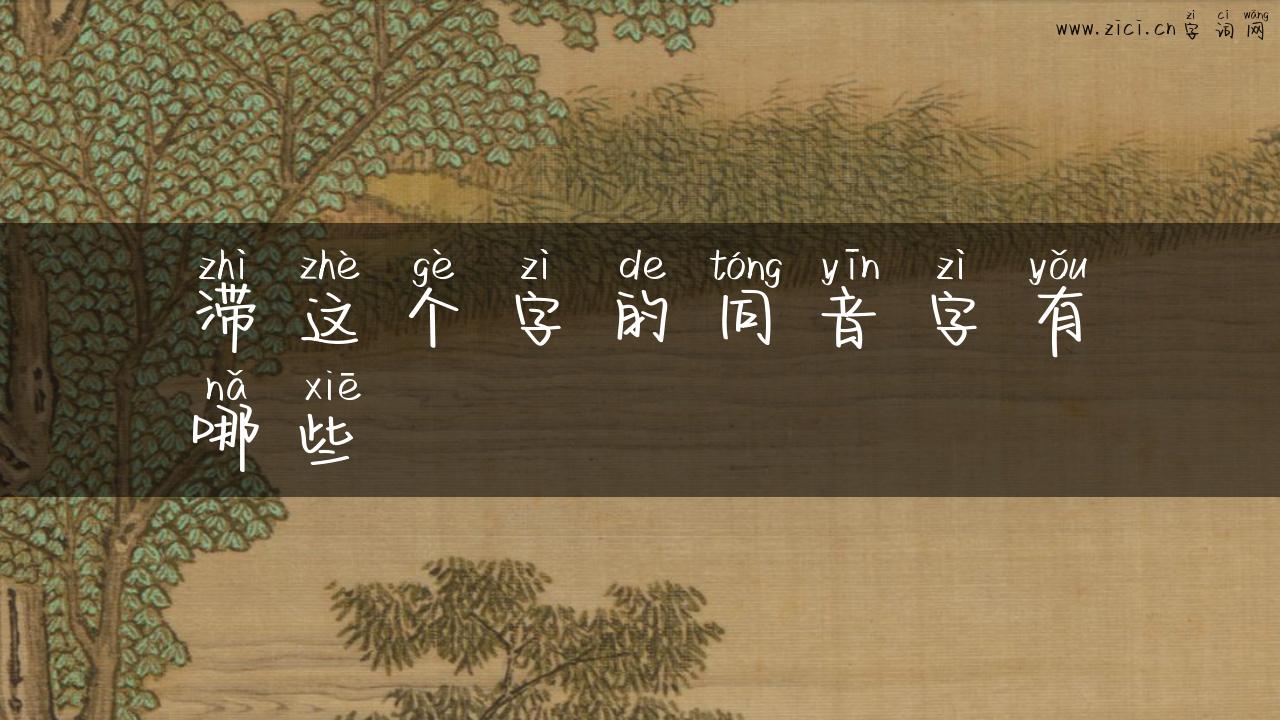 zì cí wǎng
www.zici.cn字词网
zhì zhè gè zì de tóng yīn zì yǒu
滞这个字的同音字有
nǎ xiē
哪些